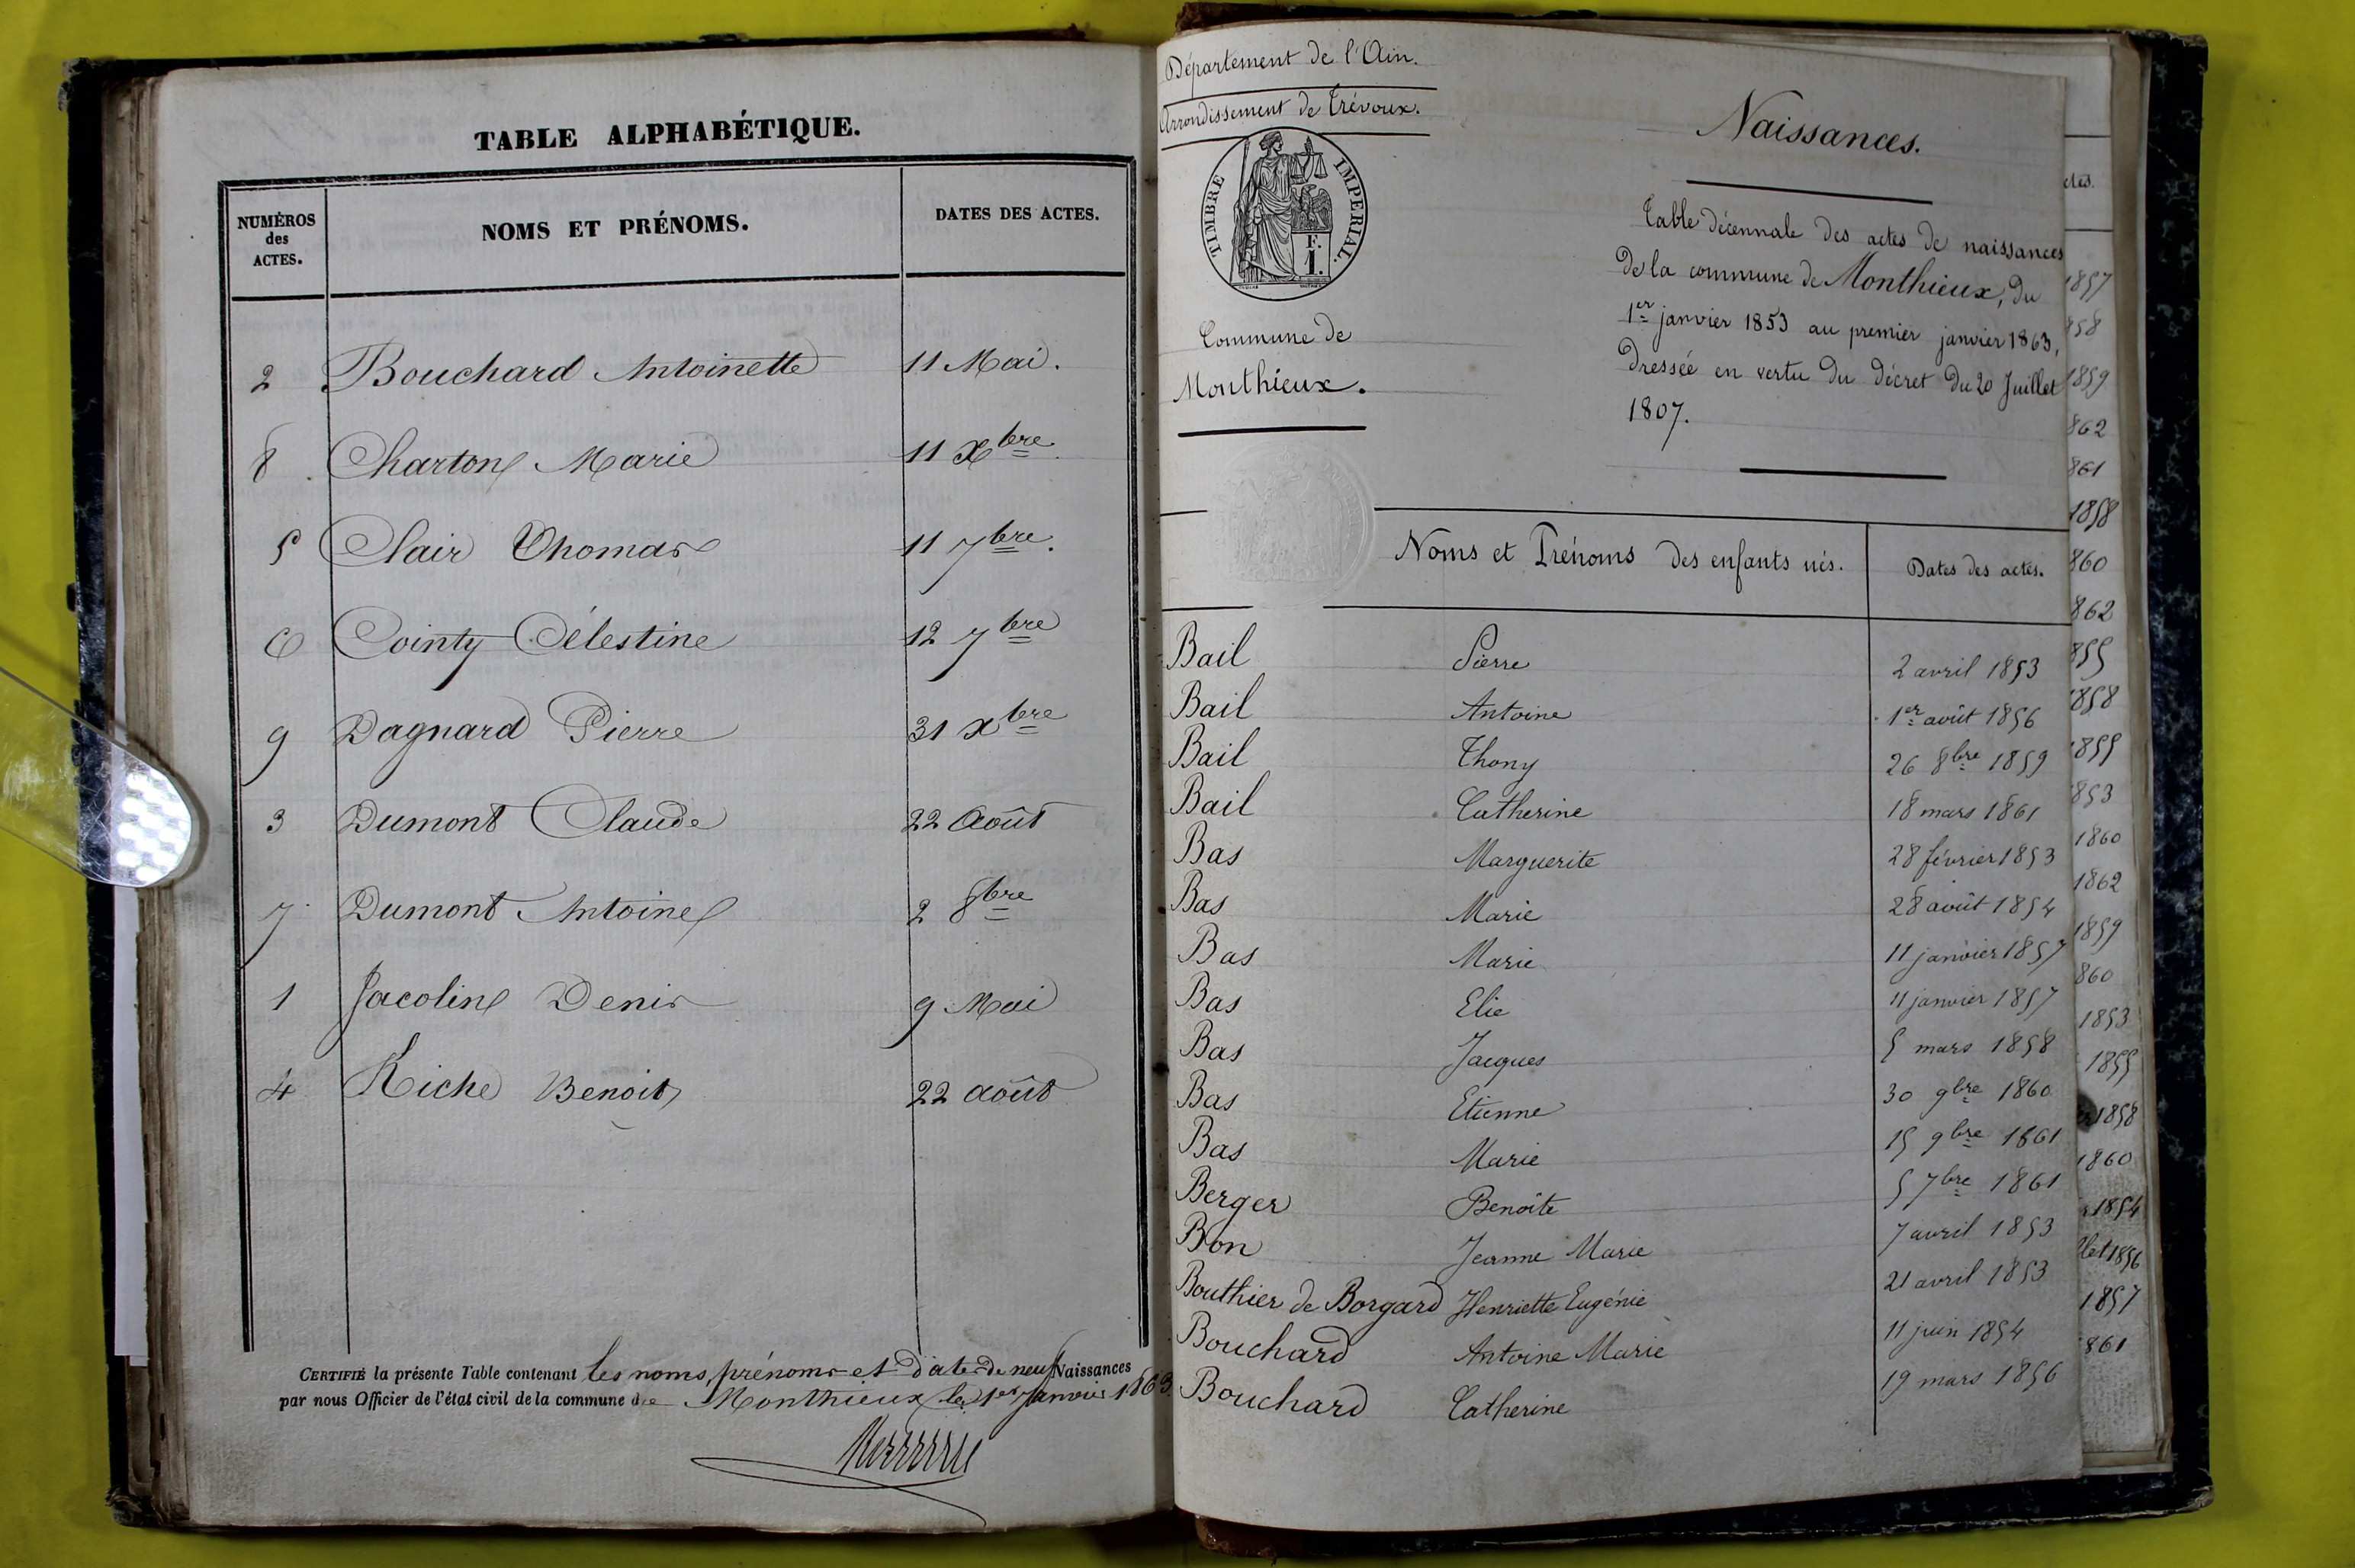 TABLE ALPHABÉTIQUE.
NUMÉROS des ACTES. NOMS ET PRÉNOMS. DATES DES ACTES.
2 Bouchard Antoinette 11 Mai.
8 Charton Marie 11 Xbre.
5 Clair Thomas 11 7bre.
6 Cointy Célestine 12 7bre
9 Dagnard Pierre 31 Xbre
3 Dumont Claude 22 Août
7 Dumont Antoine 2 8bre
1 Jacolin Denis 9 Mai
4 Riche Benoit 22 août
CERTIFIÉ la présente Table contenant les noms, prénoms et dates de neuf Naissances
par nous Officier de l'état civil de la commune de Monthieux le 1er Janvier 1863
Département de l'Ain.
Arrondissement de Trévoux.
TIMBRE IMPERIAL.
F.
1.
Commune de
Monthieux.
Naissances.
Table décennale des actes de naissances
de la commune de Monthieux, du
1er janvier 1853 au premier janvier 1863,
dressée en vertu du décret du 20 Juillet
1807.
Noms et Prénoms des enfants nés. Dates des actes.
Bail Pierre 2 avril 1853
Bail Antoine 1er août 1856
Bail Thony 26 8bre 1859
Bail Catherine 18 mars 1861
Bas Marguerite 28 février 1853
Bas Marie 28 août 1854
Bas Marie 11 janvier 1857
Bas Elie 11 janvier 1857
Bas Jacques 5 mars 1858
Bas Etienne 30 9bre 1860
Bas Marie 15 9bre 1861
Berger Benoîte 5 7bre 1861
Bon Jeanne Marie 7 avril 1853
Bouthier de Borgard Henriette Eugénie 21 avril 1853
Bouchard Antoine Marie 11 juin 1854
Bouchard Catherine 19 mars 1856
ctes.
1857
858
1859
862
861
1858
860
862
855
1858
1855
853
1860
1862
1859
860
1853
1855
1858
1860
1854
let 1856
1857
861